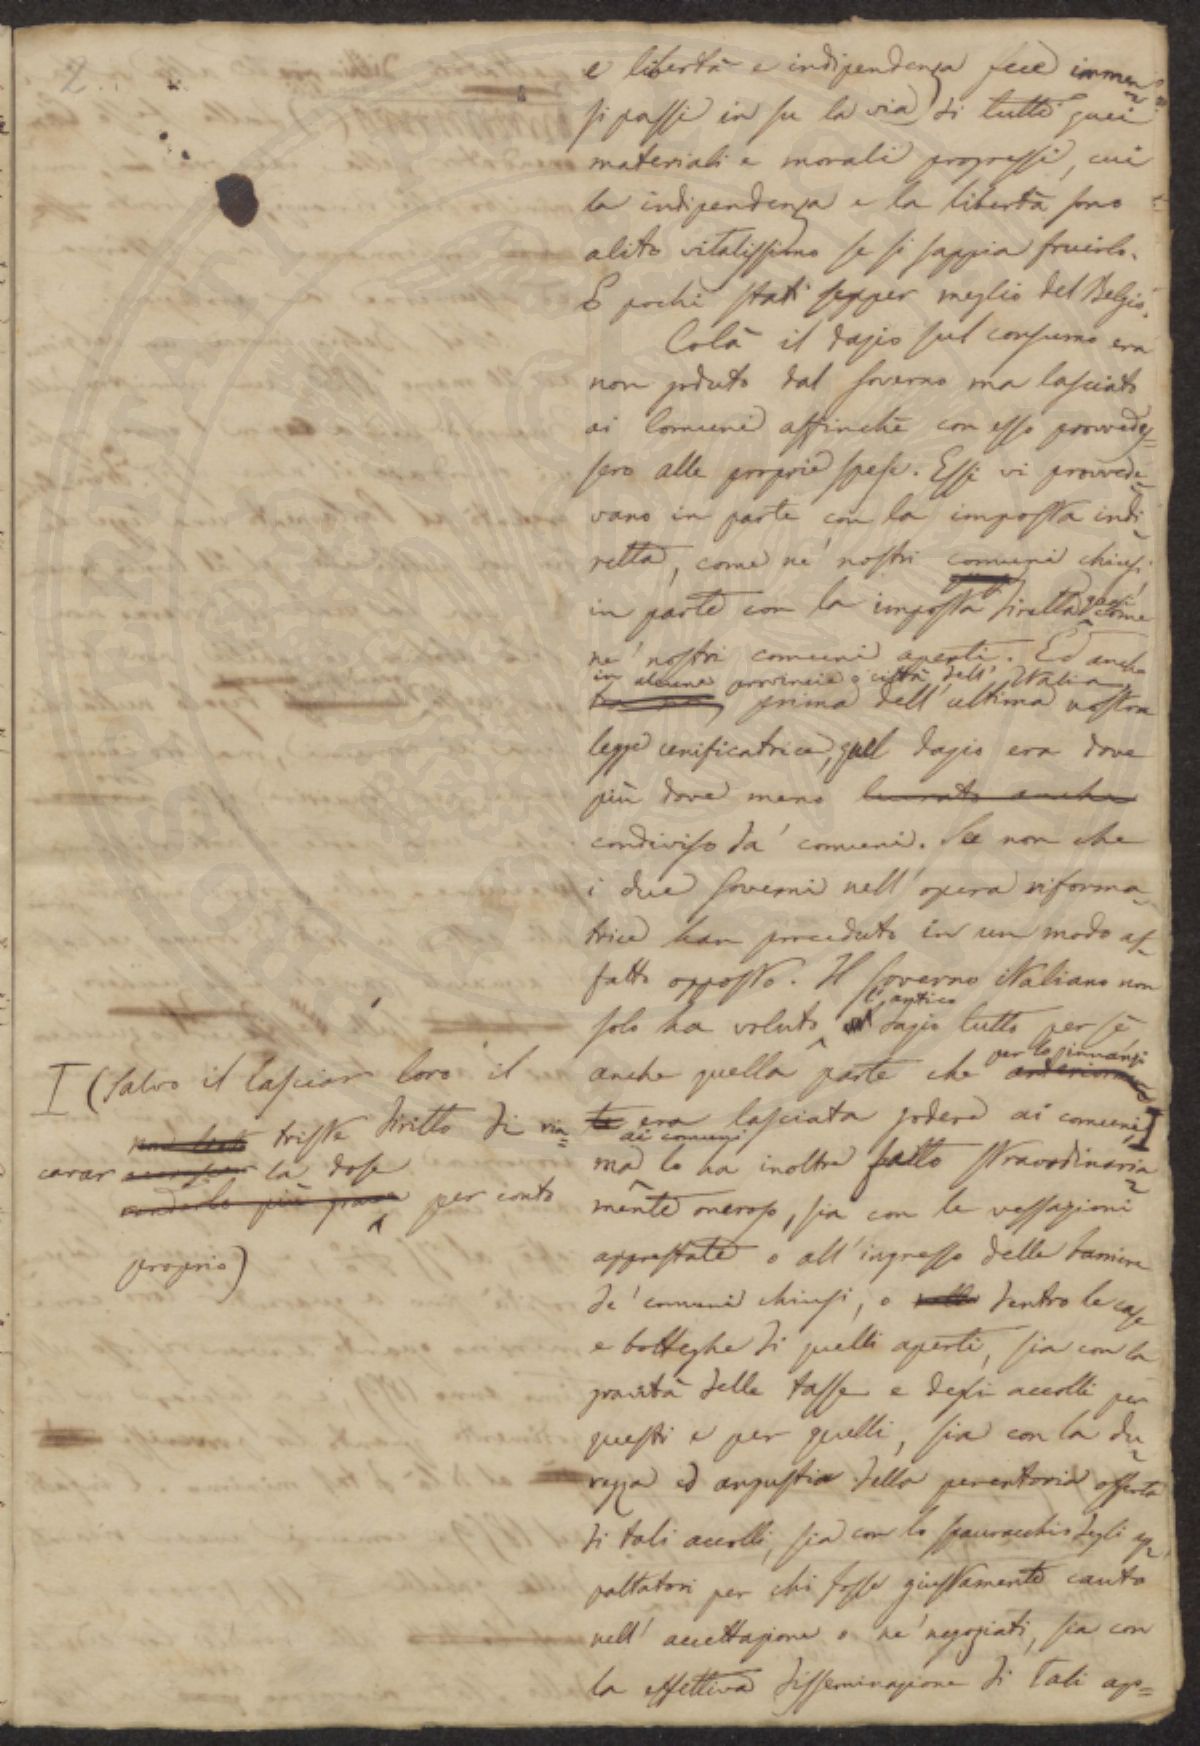 2.
e libertà e indipendenza fece immen
si passi in su la via di tutti quei
materiali e morali progressi, cui
la indipendenza e la libertà sono
alito vitalissimo se si sappia fruirlo.
E pochi stati sepper meglio del Belgio.
Colà il dazio sul consumo era
non goduto dal Governo ma lasciato
ai Comuni affinchè con esso provvedes=
sero alle proprie spese. Essi vi provvede=
vano in parte con la imposta indi=
retta, come ne' nostri comuni chiusi,
in parte con la imposta diretta quasi come
ne' nostri comuni aperti. Ed anche
in alcune provincie o città dell' Italia
prima dell' ultima nostra
legge unificatrice, quel dazio era dove
più dove meno lucrato anche
condiviso da' comuni. Se non che
i due Governi nell' opera riforma=
trice han proceduto in un modo af=
fatto opposto. Il Governo italiano non
solo ha voluto l'antico dazio tutto per sè
anche quella parte che per lo innanzi anteriormen=
te era lasciata godere ai comuni, I
ma lo ha ai comuni inoltre fatto straordinaria=
mente oneroso, sia con le vessazioni
apprestate o all' ingresso delle barriere
de' comuni chiusi, o dentro le case
e botteghe di quelli aperti, sia con la
gravità delle tasse e degli accolli per
questi e per quelli, sia con la du=
rezza ed angustia della perentoria offerta
di tali accolli, sia con lo spauracchio degli ap=
paltatori per chi fosse giustamente cauto
nell' accettazione o ne' negoziati, sia con
la effettiva disseminazione di tali ap=
I (salvo il lasciar loro il
triste diritto di rin=
carar la dose
renderlo più grave per conto
proprio)